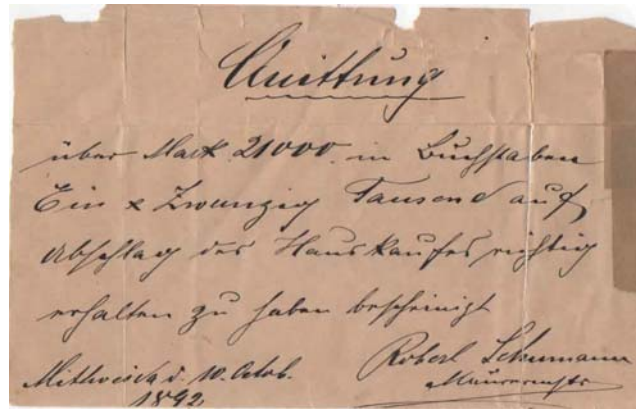 Quittung
über Mark 21000. in Buchstaben
Ein & Zwanzig Tausend auf
Abschlag des Hauskaufes richtig
erhalten zu haben bescheinigt
Mittweida d. 10. Octob. Robert Schumann
1892.